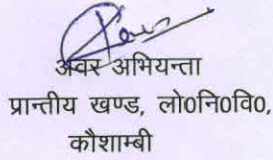 अवर अभियन्ता
प्रान्तीय खण्ड, लो०नि०वि०,
कौशाम्बी